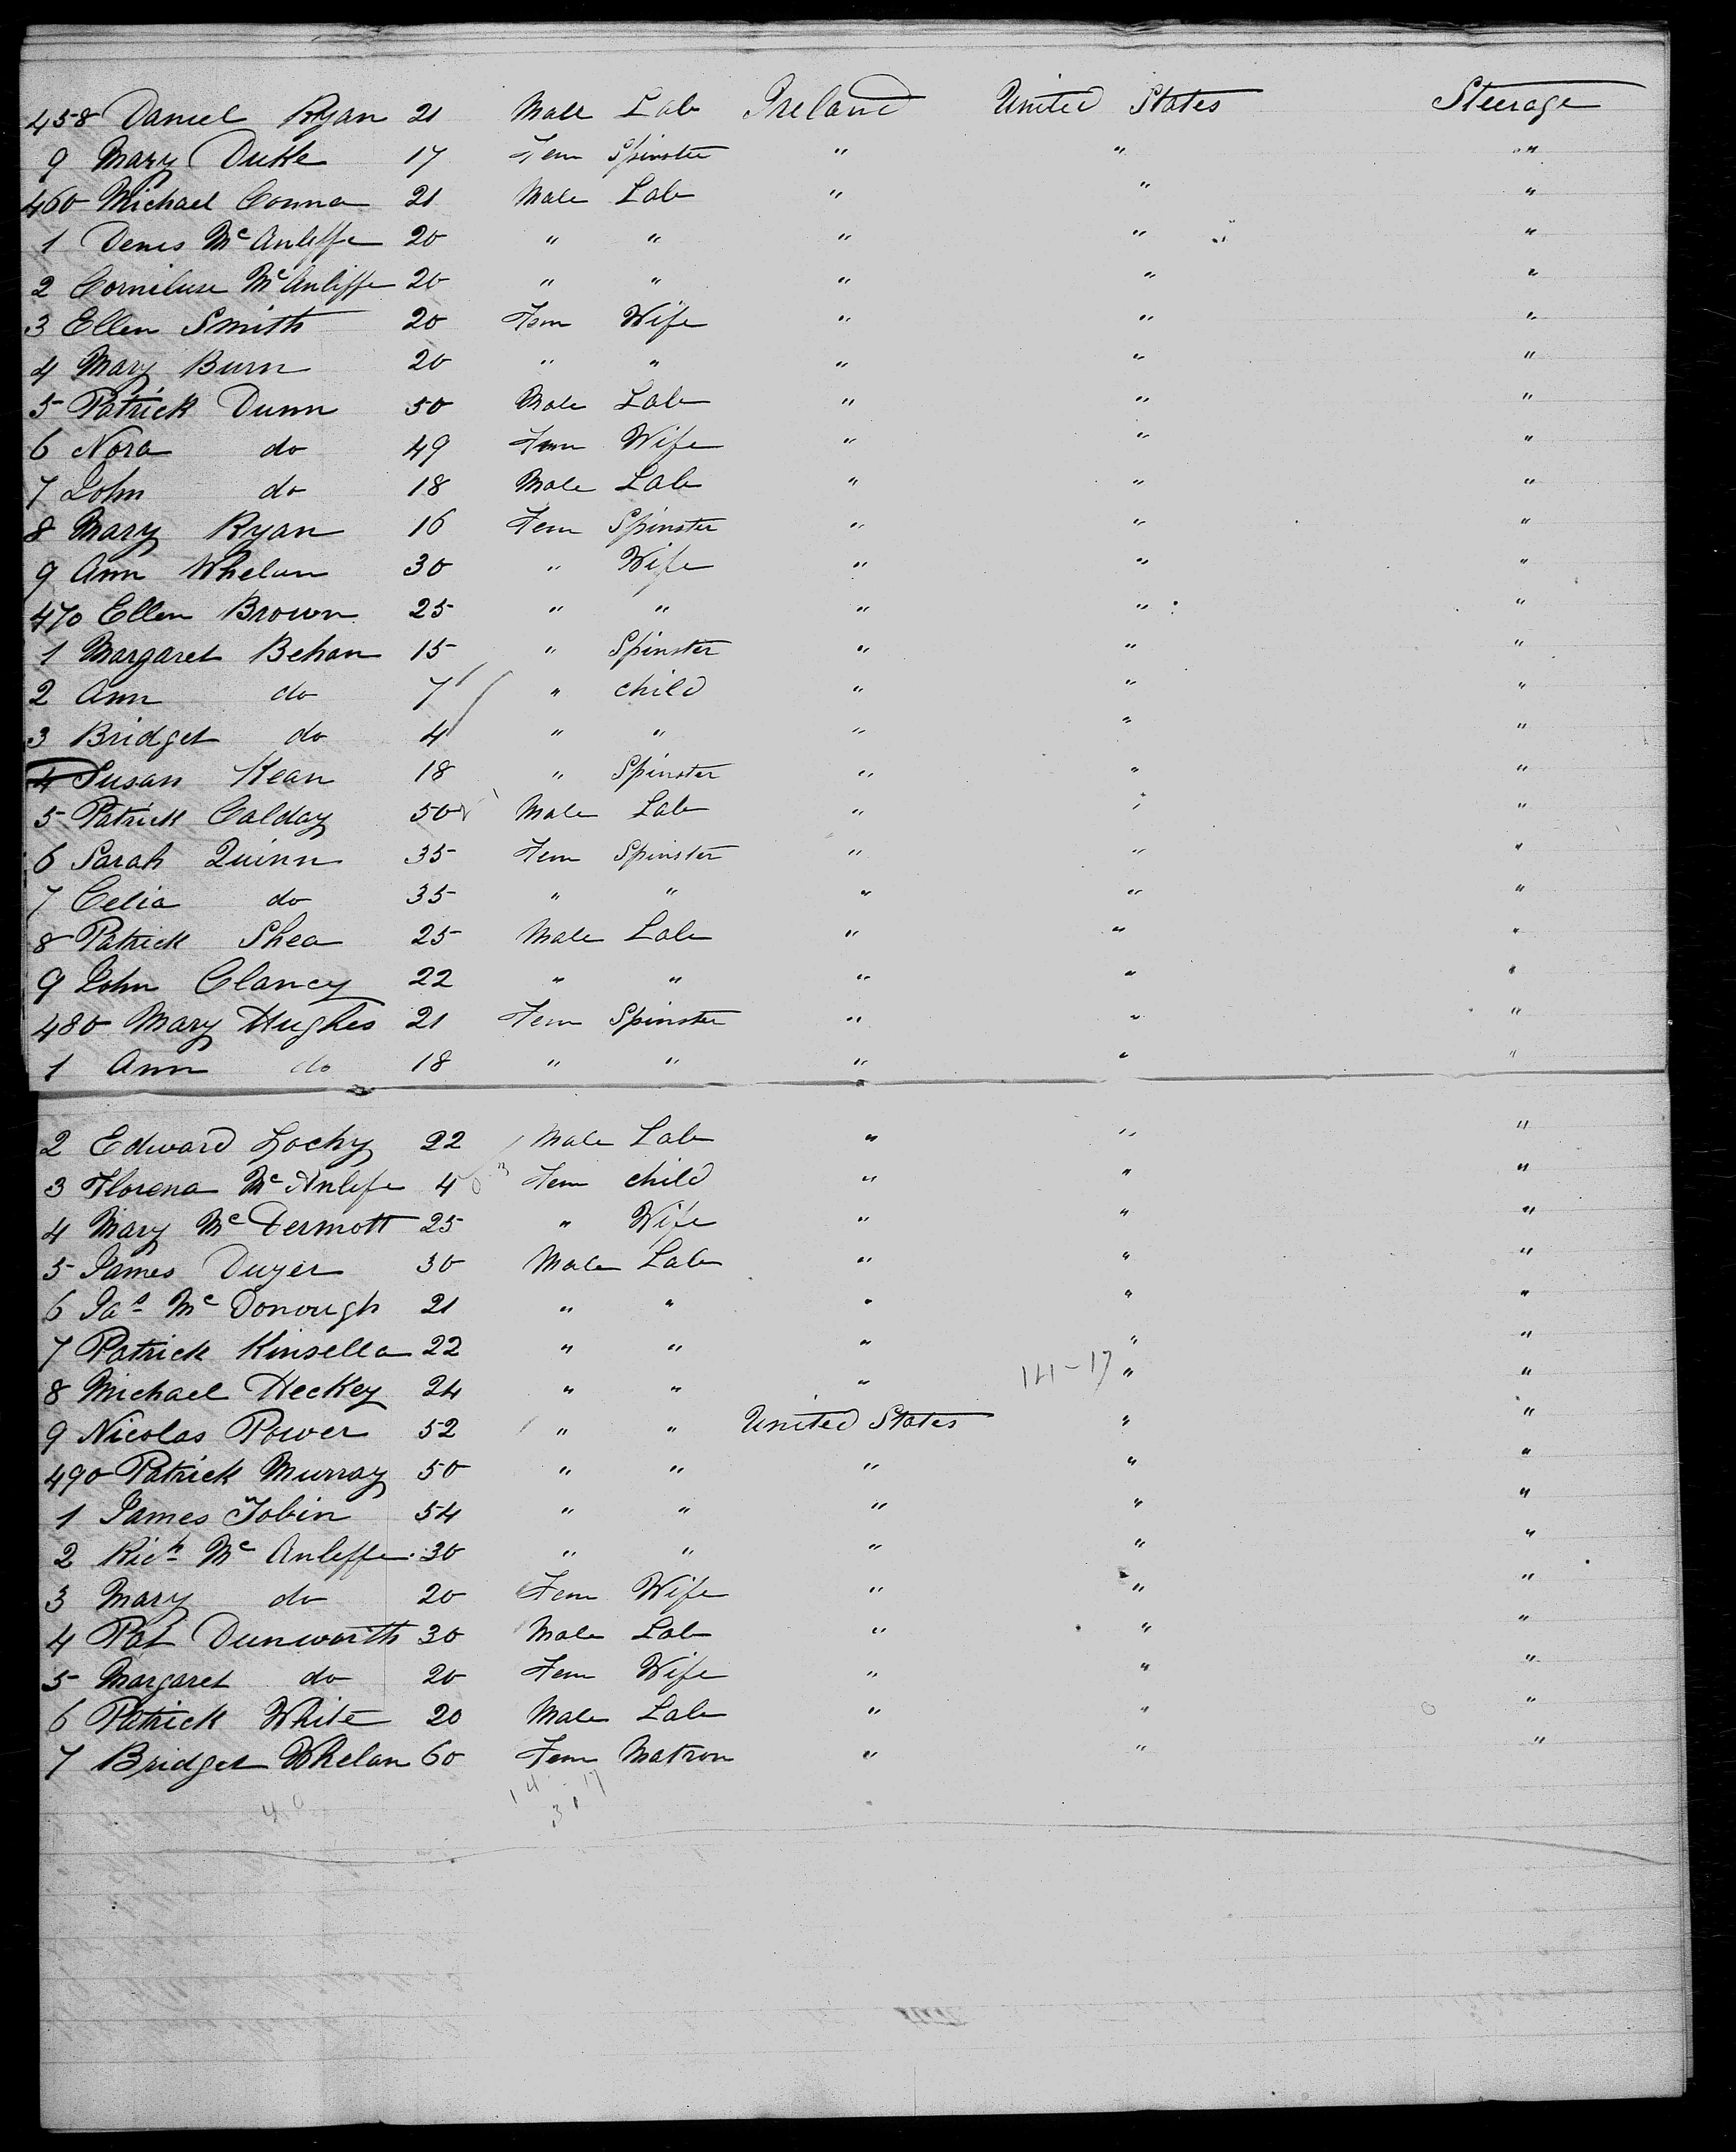 458 Daniel Ryan 21 Male Lab Ireland United States Steerage
9 Mary Duke 17 Fem Spinster " " "
460 Michael Conna 21 Male Lab " " "
1 Denis Mc Anleffe 20 " " " " "
2 Corneluse Mc Anliffe 20 " " " " "
3 Ellen Smith 20 Fem Wife " " "
4 Mary Burn 20 " " " " "
5 Patrick Dunn 50 Male Lab " " "
6 Nora do 49 Fem Wife " " "
7 John do 18 Male Lab " " "
8 Mary Ryan 16 Fem Spinster " " "
9 Ann Whelan 30 " Wife " " "
470 Ellen Brown 25 " " " " "
1 Margaret Behan 15 " Spinster " " "
2 Ann do 7 " child " " "
3 Bridget do 4 " " " " "
4 Susan Kean 18 " Spinster " " "
5 Patrick Calday 50 Male Lab " " "
6 Sarah Quinn 35 Fem Spinster " " "
7 Celia do 35 " " " " "
8 Patrick Shea 25 Male Lab " " "
9 John Clancy 22 " " " " "
480 Mary Hughes 21 Fem Spinster " " "
1 Ann do 18 " " " " "
2 Edward Lochy 22 Male Lab " " "
3 Florena Mc Anlife 4 Fem child " " "
4 Mary Mc Dermott 25 " Wife " " "
5 James Duyer 30 Male Lab " " "
6 Jas Mc Donough 21 " " " " "
7 Patrick Kinsella 22 " " " " "
8 Michael Heckey 24 " " " 141-17 " "
9 Nicolas Power 52 " " United States " "
490 Patrick Murray 50 " " " " "
1 James Tobin 54 " " " " "
2 Rich Mc Anleffe 30 " " " " "
3 Mary do 20 Fem Wife " " "
4 Pat Dunworth 30 Male Lab " " "
5 Margaret do 20 Fem Wife " " "
6 Patrick White 20 Male Lab " " "
7 Bridget Whelan 60 Fem Matron " " "
40 14 17